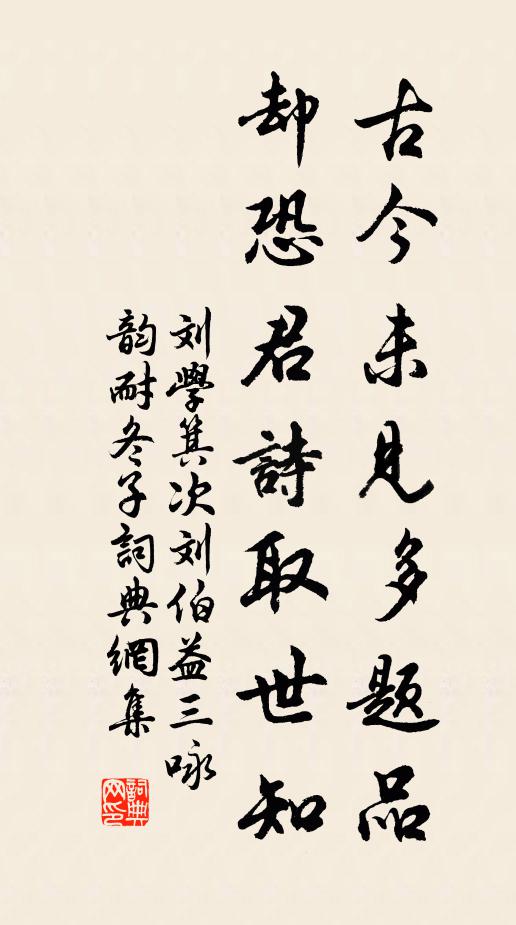 古今未见多题品
却恐君詩取世知
刘學箕次刘伯益三咏
韵耐冬子詞典網集
詞典网印